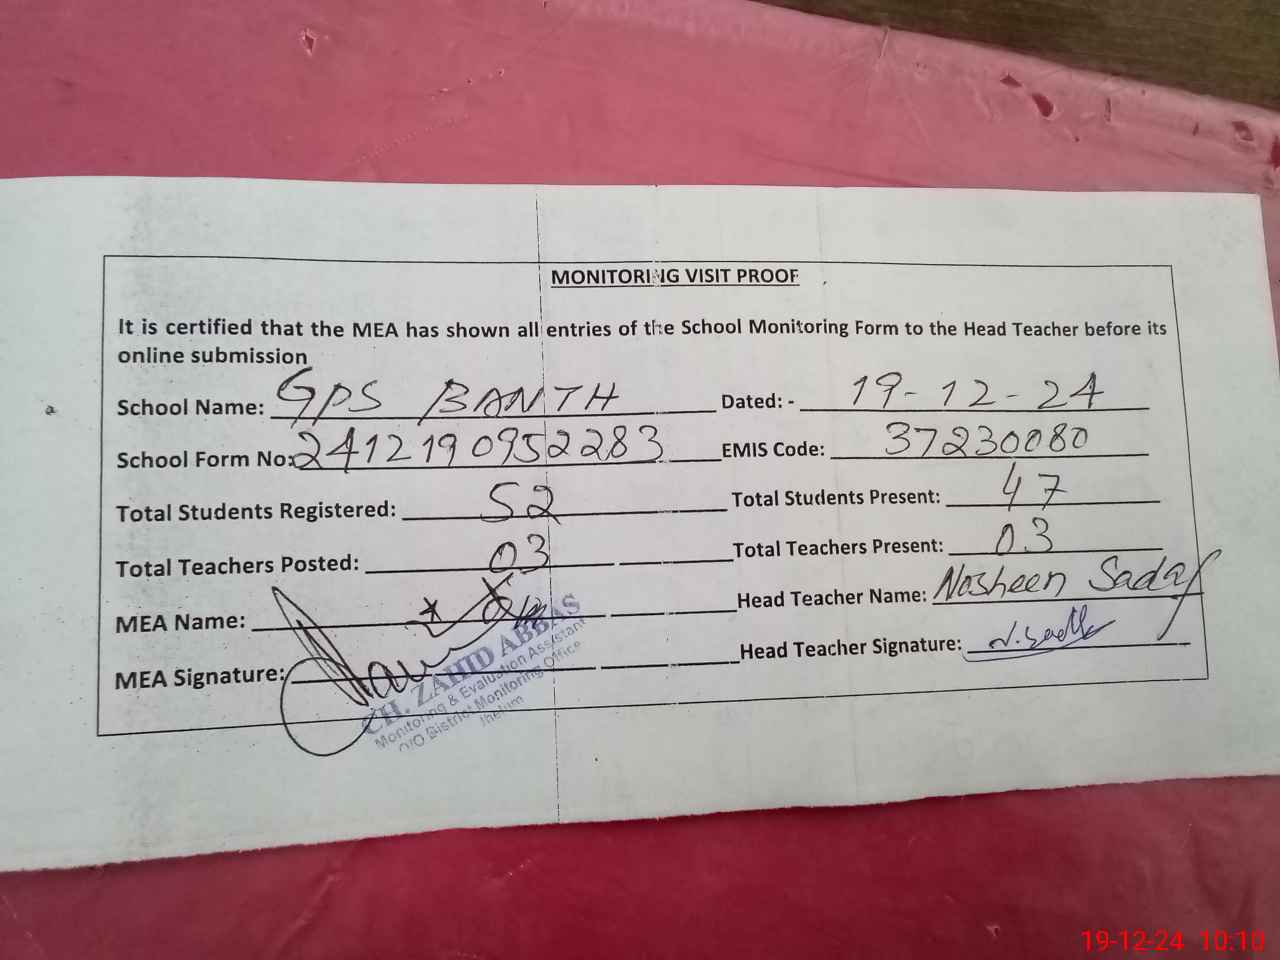 MONITORING VISIT PROOF
It is certified that the MEA has shown all entries of the School Monitoring Form to the Head Teacher before its
online submission
School Name: GPS BANTH Dated: - 19-12-24
School Form No: 2412190952283 EMIS Code: 37230080
Total Students Registered: 52 Total Students Present: 47
Total Teachers Posted: 03 Total Teachers Present: 03
MEA Name: Head Teacher Name: Nosheen Sadaf
MEA Signature: Head Teacher Signature: N. Sadaf
CH. ZAHID ABBAS
Monitoring & Evaluation Assistant
O/O District Monitoring Office
Jhelum
19-12-24 10:10